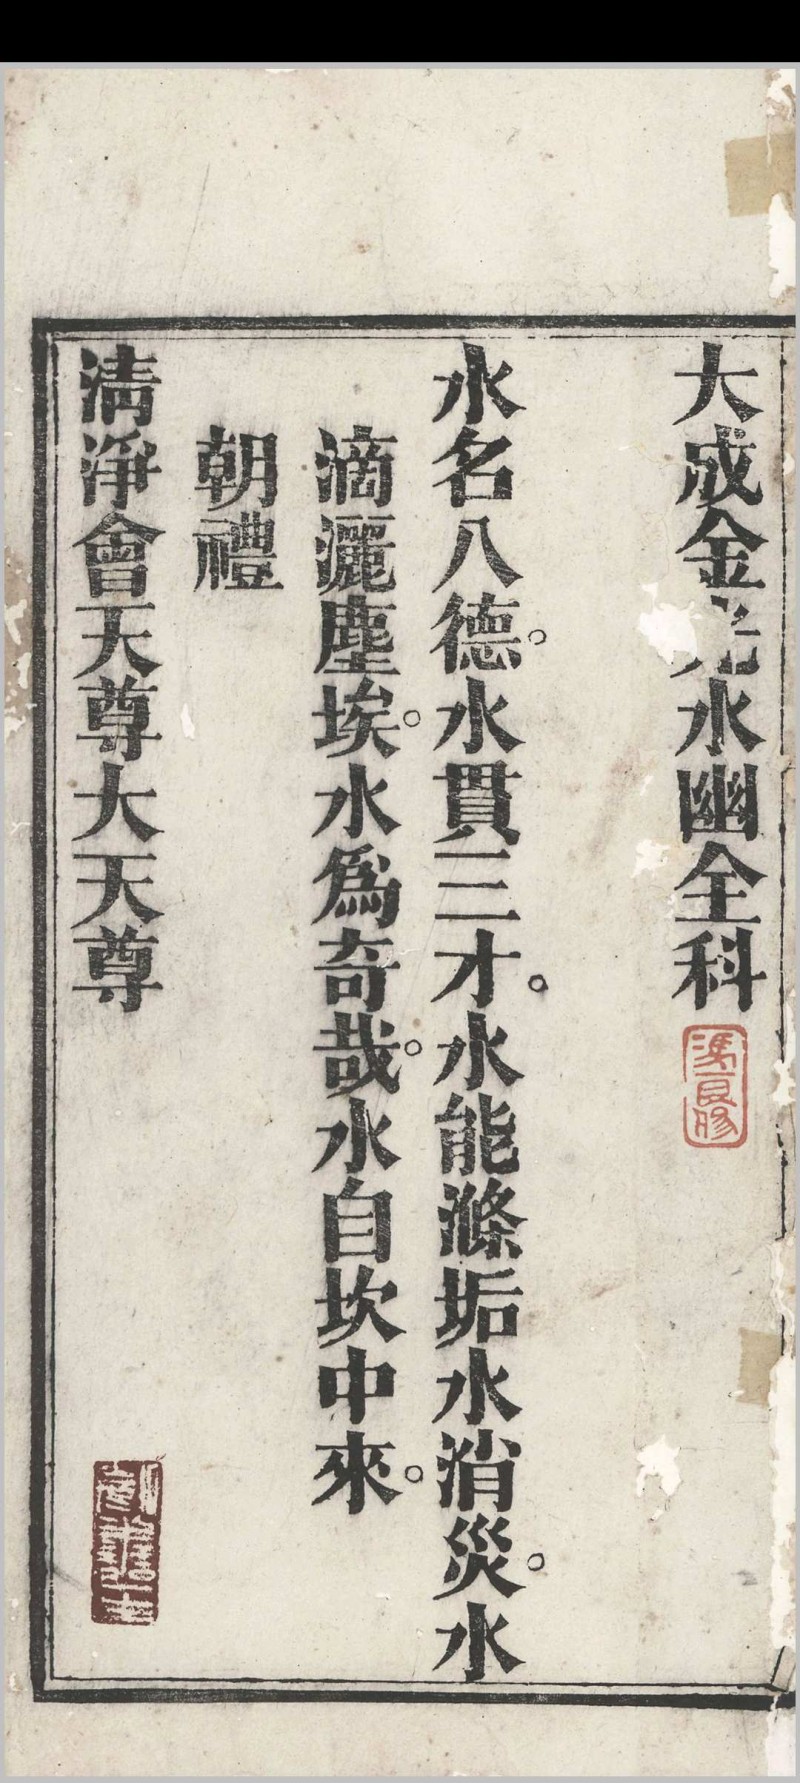 大成金光水幽全科
水名八德。水貫三才。水能滌垢水消災。水
滴灑塵埃。水爲奇哉。水自坎中來。
朝禮
清淨會天尊大天尊